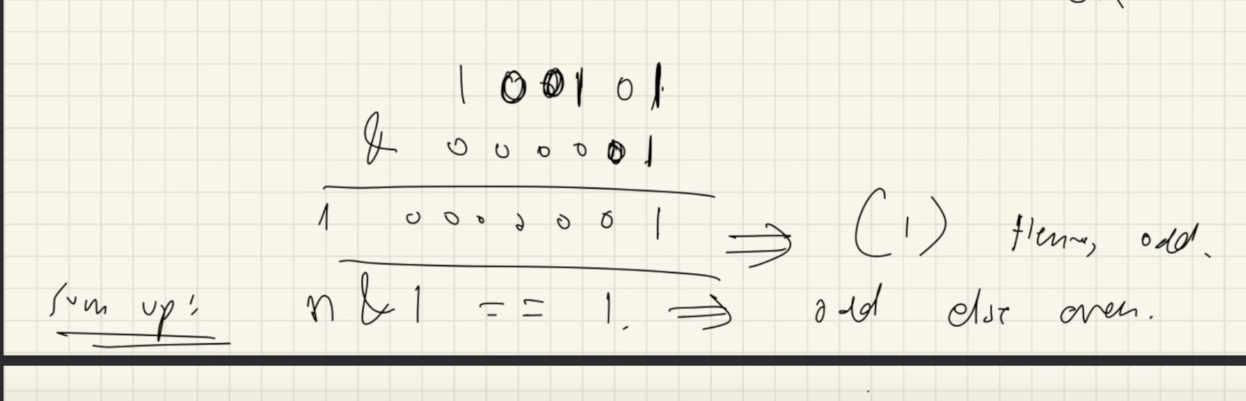 1 0 0 1 0 1
& 0 0 0 0 0 1
1 0 0 0 0 0 0 1 ⇒ (1) Hence, odd.
Sum up: n & 1 == 1. ⇒ odd else even.